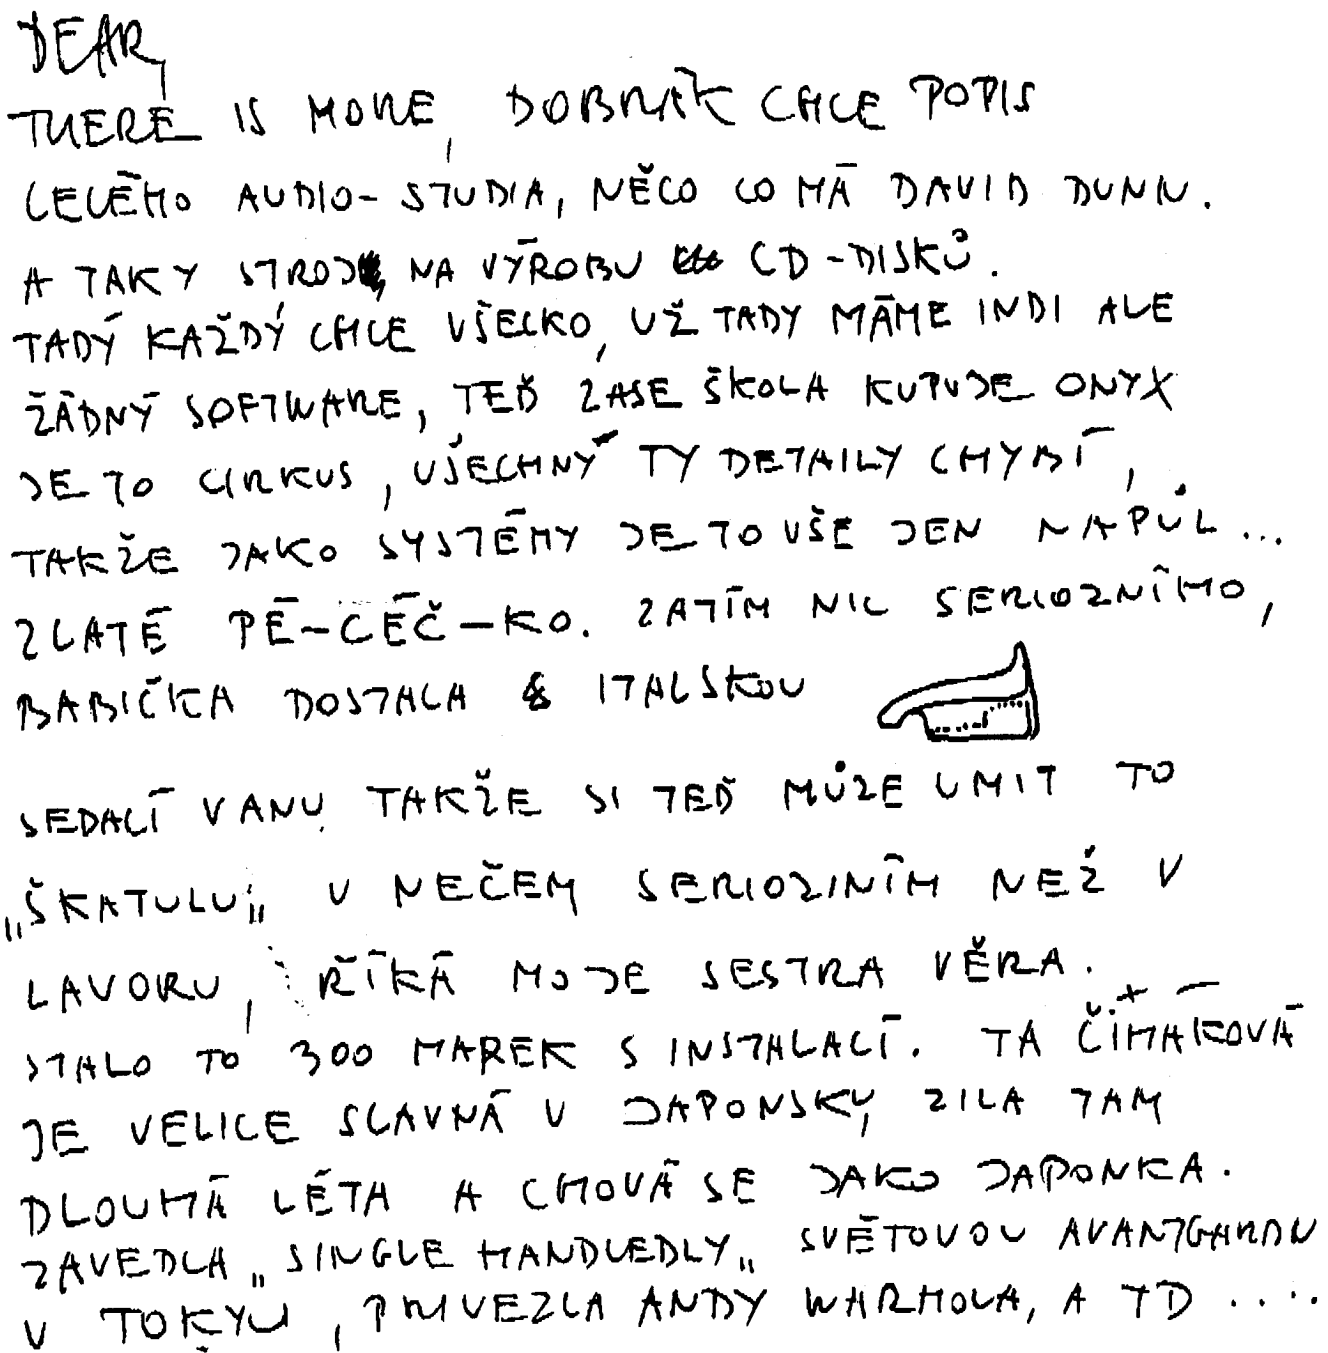 DEAR,
THERE IS MORE, DOBRÁK CHCE POPIS
CELÉHO AUDIO-STUDIA, NĚCO CO MÁ DAVID DUNN.
A TAKY STROJ NA VÝROBU CD-DISKŮ.
TADÝ KAŽDÝ CHCE VŠECKO, UŽ TADY MÁME INDI ALE
ŽÁDNÝ SOFTWARE, TEĎ ZASE ŠKOLA KUPUJE ONYX
JE TO CIRKUS, VŠECHNY TY DETAILY CHYBÍ,
TAKŽE JAKO SYSTÉMY JE TO VŠE JEN NAPŮL...
ZLATÉ PÉ-CÉČ-KO. ZATÍM NIC SERIOZNÍHO,
BABIČKA DOSTALA ITALSKOU
SEDACÍ VANU TAKŽE SI TEĎ MŮZE UMIT TO
„ŠKATULU„ V NEČEM SERIOZINÍM NEŽ V
LAVORU, ŘÍKÁ MOJE SESTRA VĚRA.
STALO TO 300 MAREK S INSTALACÍ. TA ČIHÁKOVÁ
JE VELICE SLAVNÁ V JAPONSKY, ZILA TAM
DLOUHÁ LÉTA A CHOVÁ SE JAKO JAPONKA.
ZAVEDLA „SINGLE HANDLEDLY„ SVĚTOVOU AVANTGARDU
V TOKYU, PRIVEZLA ANDY WHRHOLA, A TD ....